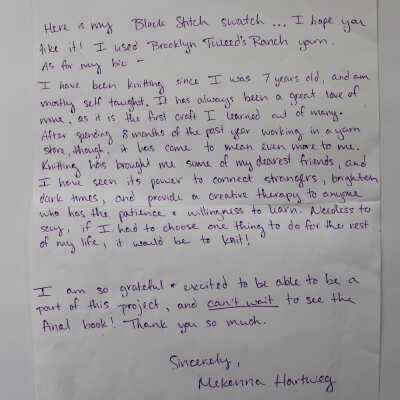 Here is my Block Stitch swatch... I hope you
like it! I used Brooklyn Tweed's Ranch yarn.
As for my bio -
I have been knitting since I was 7 years old, and am
mostly self taught. It has always been a great love of
mine, as it is the first craft I learned out of many.
After spending 8 months of the past year working in a yarn
store, though, it has come to mean even more to me.
Knitting has brought me some of my dearest friends, and
I have seen its power to connect strangers, brighten
dark times, and provide a creative therapy to anyone
who has the patience + willingness to learn. Needless to
say, if I had to choose one thing to do for the rest
of my life, it would be to knit!
I am so grateful + excited to be able to be a
part of this project, and can't wait to see the
final book! Thank you so much.
Sincerely,
Mekenna Hartweg